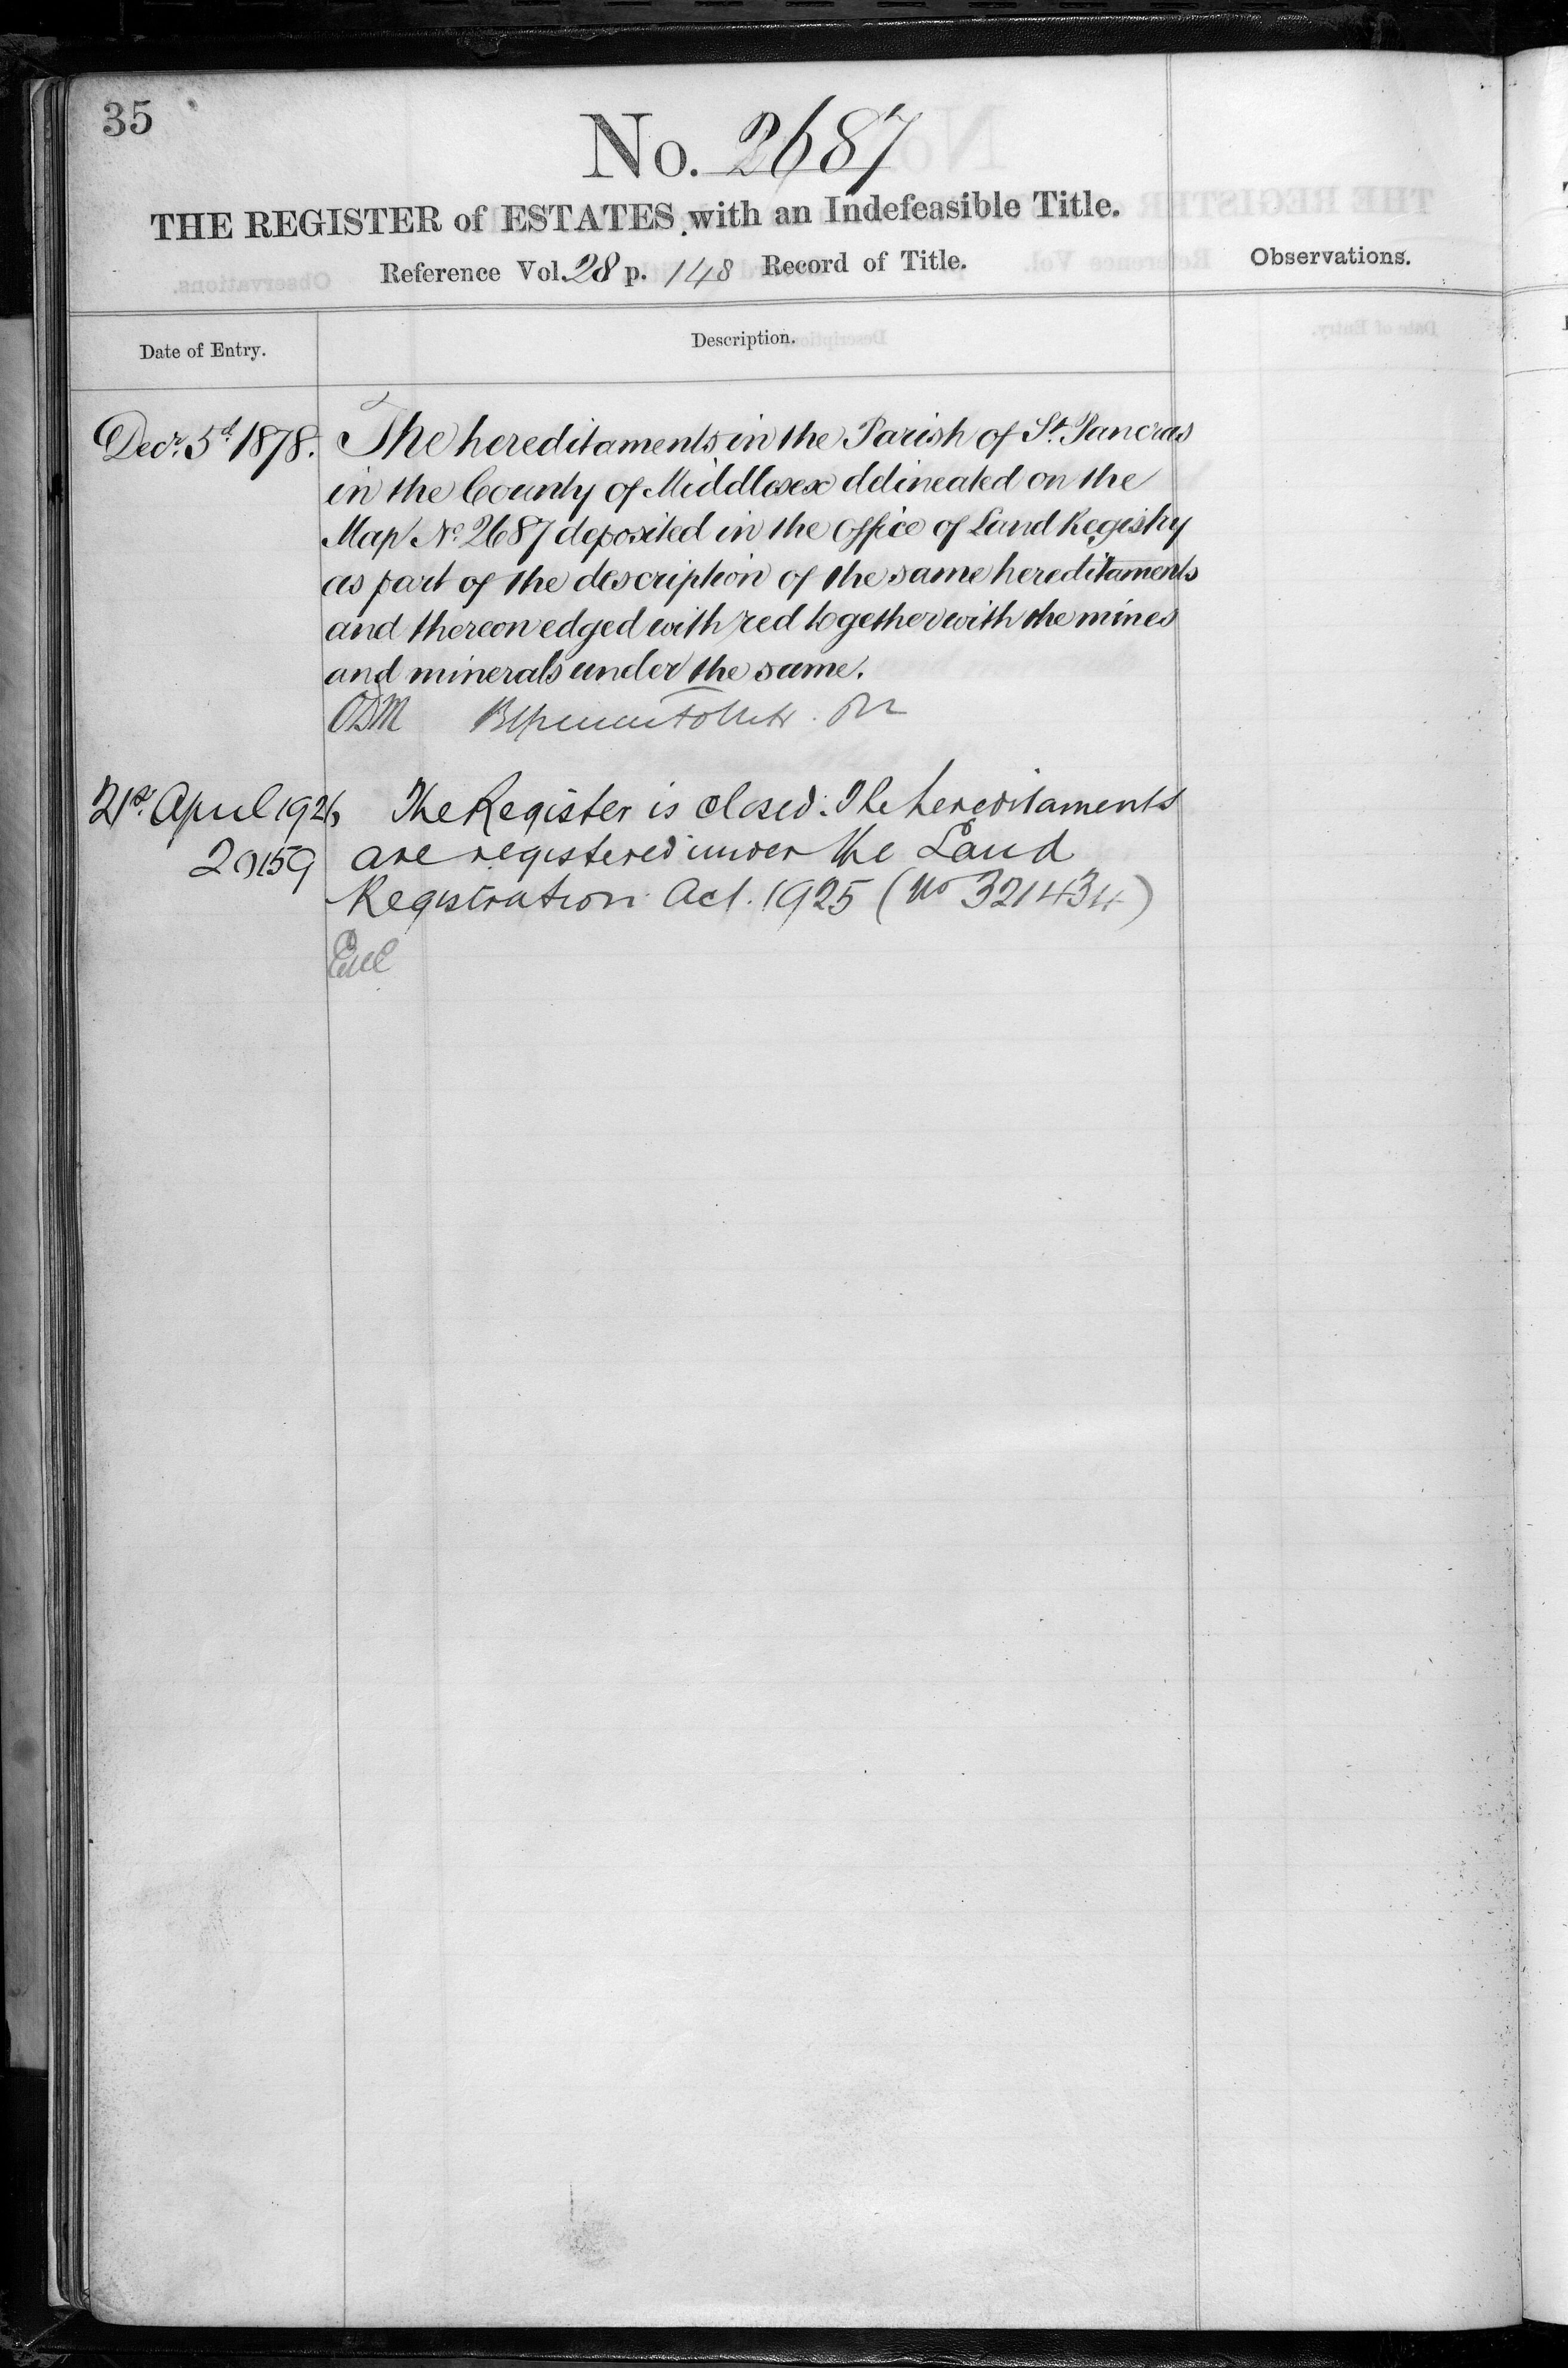 35
No. 2687
THE REGISTER of ESTATES with an Indefeasible Title.
Reference Vol. 28 p. 148 Record of Title.
Observations.
Date of Entry.
Description.
Decr. 5th 1878. The hereditaments in the Parish of St. Pancras
in the County of Middlesex delineated on the
Map No. 2687 deposited in the Office of Land Registry
as part of the description of the same hereditaments
and thereon edged with red together with the mines
and minerals under the same.
21st April 1926 The Register is closed. The hereditaments
20159 are registered under the Land
Registration Act. 1925 (No 321434)